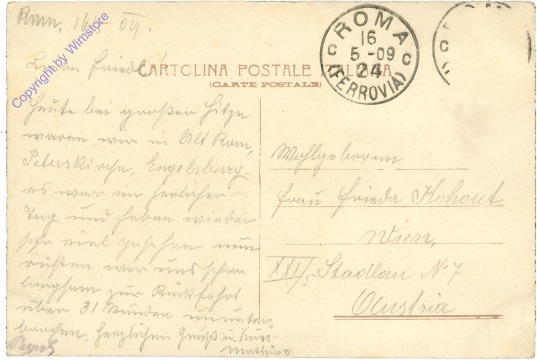 Rom, 16/5 09.
Copyright by Winstore
CARTOLINA POSTALE ITALIANA
(CARTE POSTALE)
ROMA
16
5-09
24
(FERROVIA)
Heute bei großer Hitze
waren wir in Alt Rom,
Peterskirche, Engelsburg
es war ein herrlicher
Tag und haben wieder
sehr viel gesehen nun
müßen wir uns schon
langsam zur Rückfahrt
über 31 Stunden ununter-
brochen herzlichen Gruß u. Kuss
Mathias
Wohlgeboren
Frau Frieda Kohout
Wien,
XXI/5 Stadlau No 7
Austria